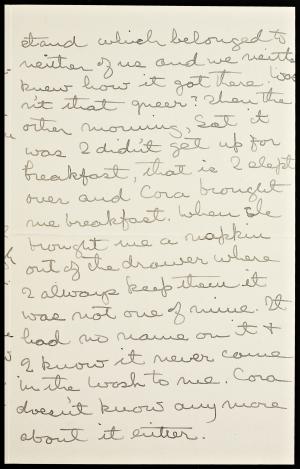 stand which belonged to
neither of us and we neither
knew how it got there. Was
n't that queer? Then the
other morning, Sat it
was I didn't get up for
breakfast, that is I slept
over and Cora brought
me breakfast. When she
brought me a napkin
out of the drawer where
I always keep them it
was not one of mine. It
had no name on it &
I know it never came
in the wash to me. Cora
doesn't know any more
about it either.